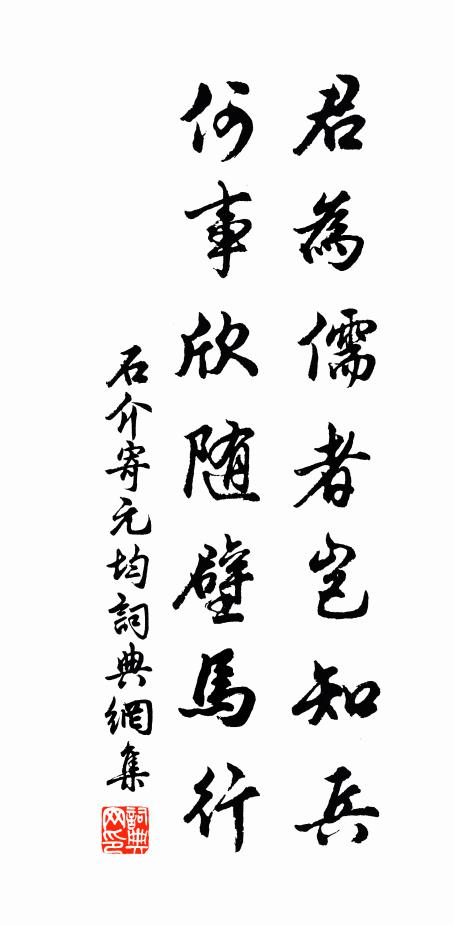 君為儒者豈知兵
何事欣随壁馬行
石介寄元均詞典網集
詞典网印